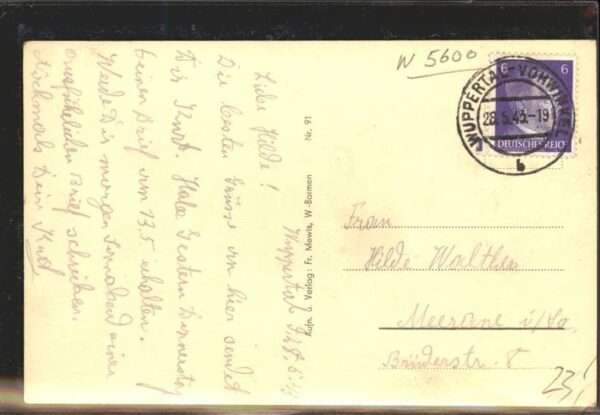 W 5600
Wuppertal
Liebe Hilde!
Die besten Grüsse von hier sendet
Dir Kurt. Habe Gestern Donnerstag
Deinen Brief vom 23.5 erhalten.
Werde Dir morgen Sonnabend einen
ausführlichen Brief schreiben.
Nochmals Dein Kurt
Aufn. u. Verlag: Fr. Mewis, W.-Barmen Nr. 91
WUPPERTAL-VOHWINKEL
28.5.43.-19
b
6 6
DEUTSCHES REICH
Frau
Hilde Walther
Meerane i/Sa.
Brüderstr. 8
23,!